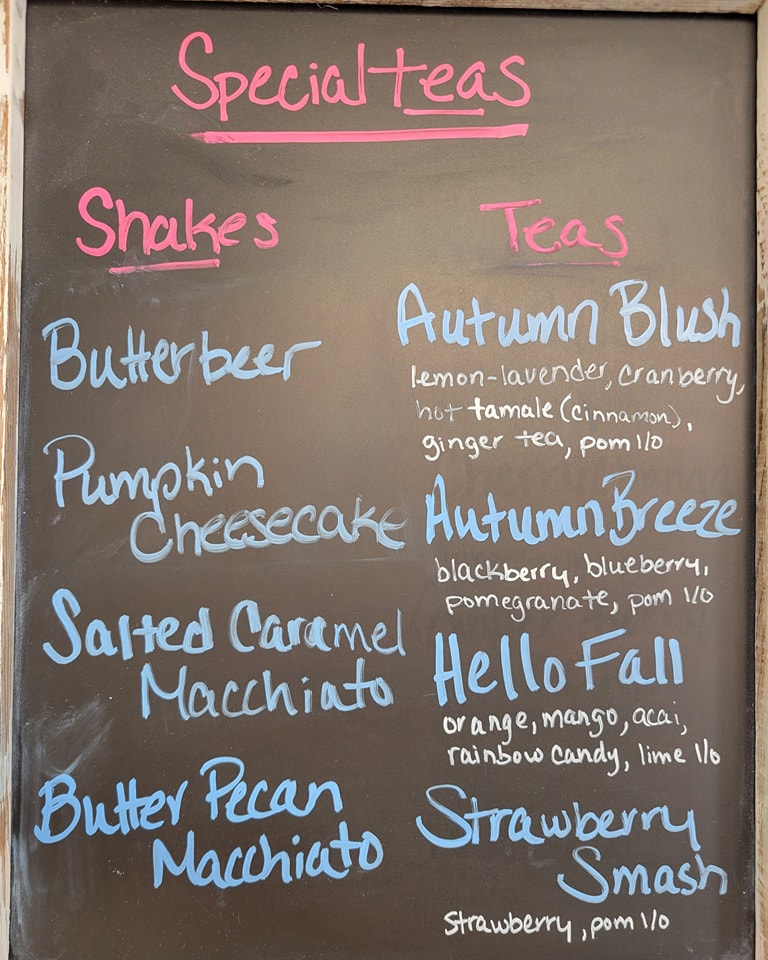 Specialteas
Shakes
Butterbeer
Pumpkin
Cheesecake
Salted Caramel
Macchiato
Butter Pecan
Macchiato
Teas
Autumn Blush
lemon-lavender, cranberry,
hot tamale (cinnamon),
ginger tea, pom l/o
Autumn Breeze
blackberry, blueberry,
pomegranate, pom l/o
Hello Fall
orange, mango, acai,
rainbow candy, lime l/o
Strawberry
Smash
strawberry, pom l/o